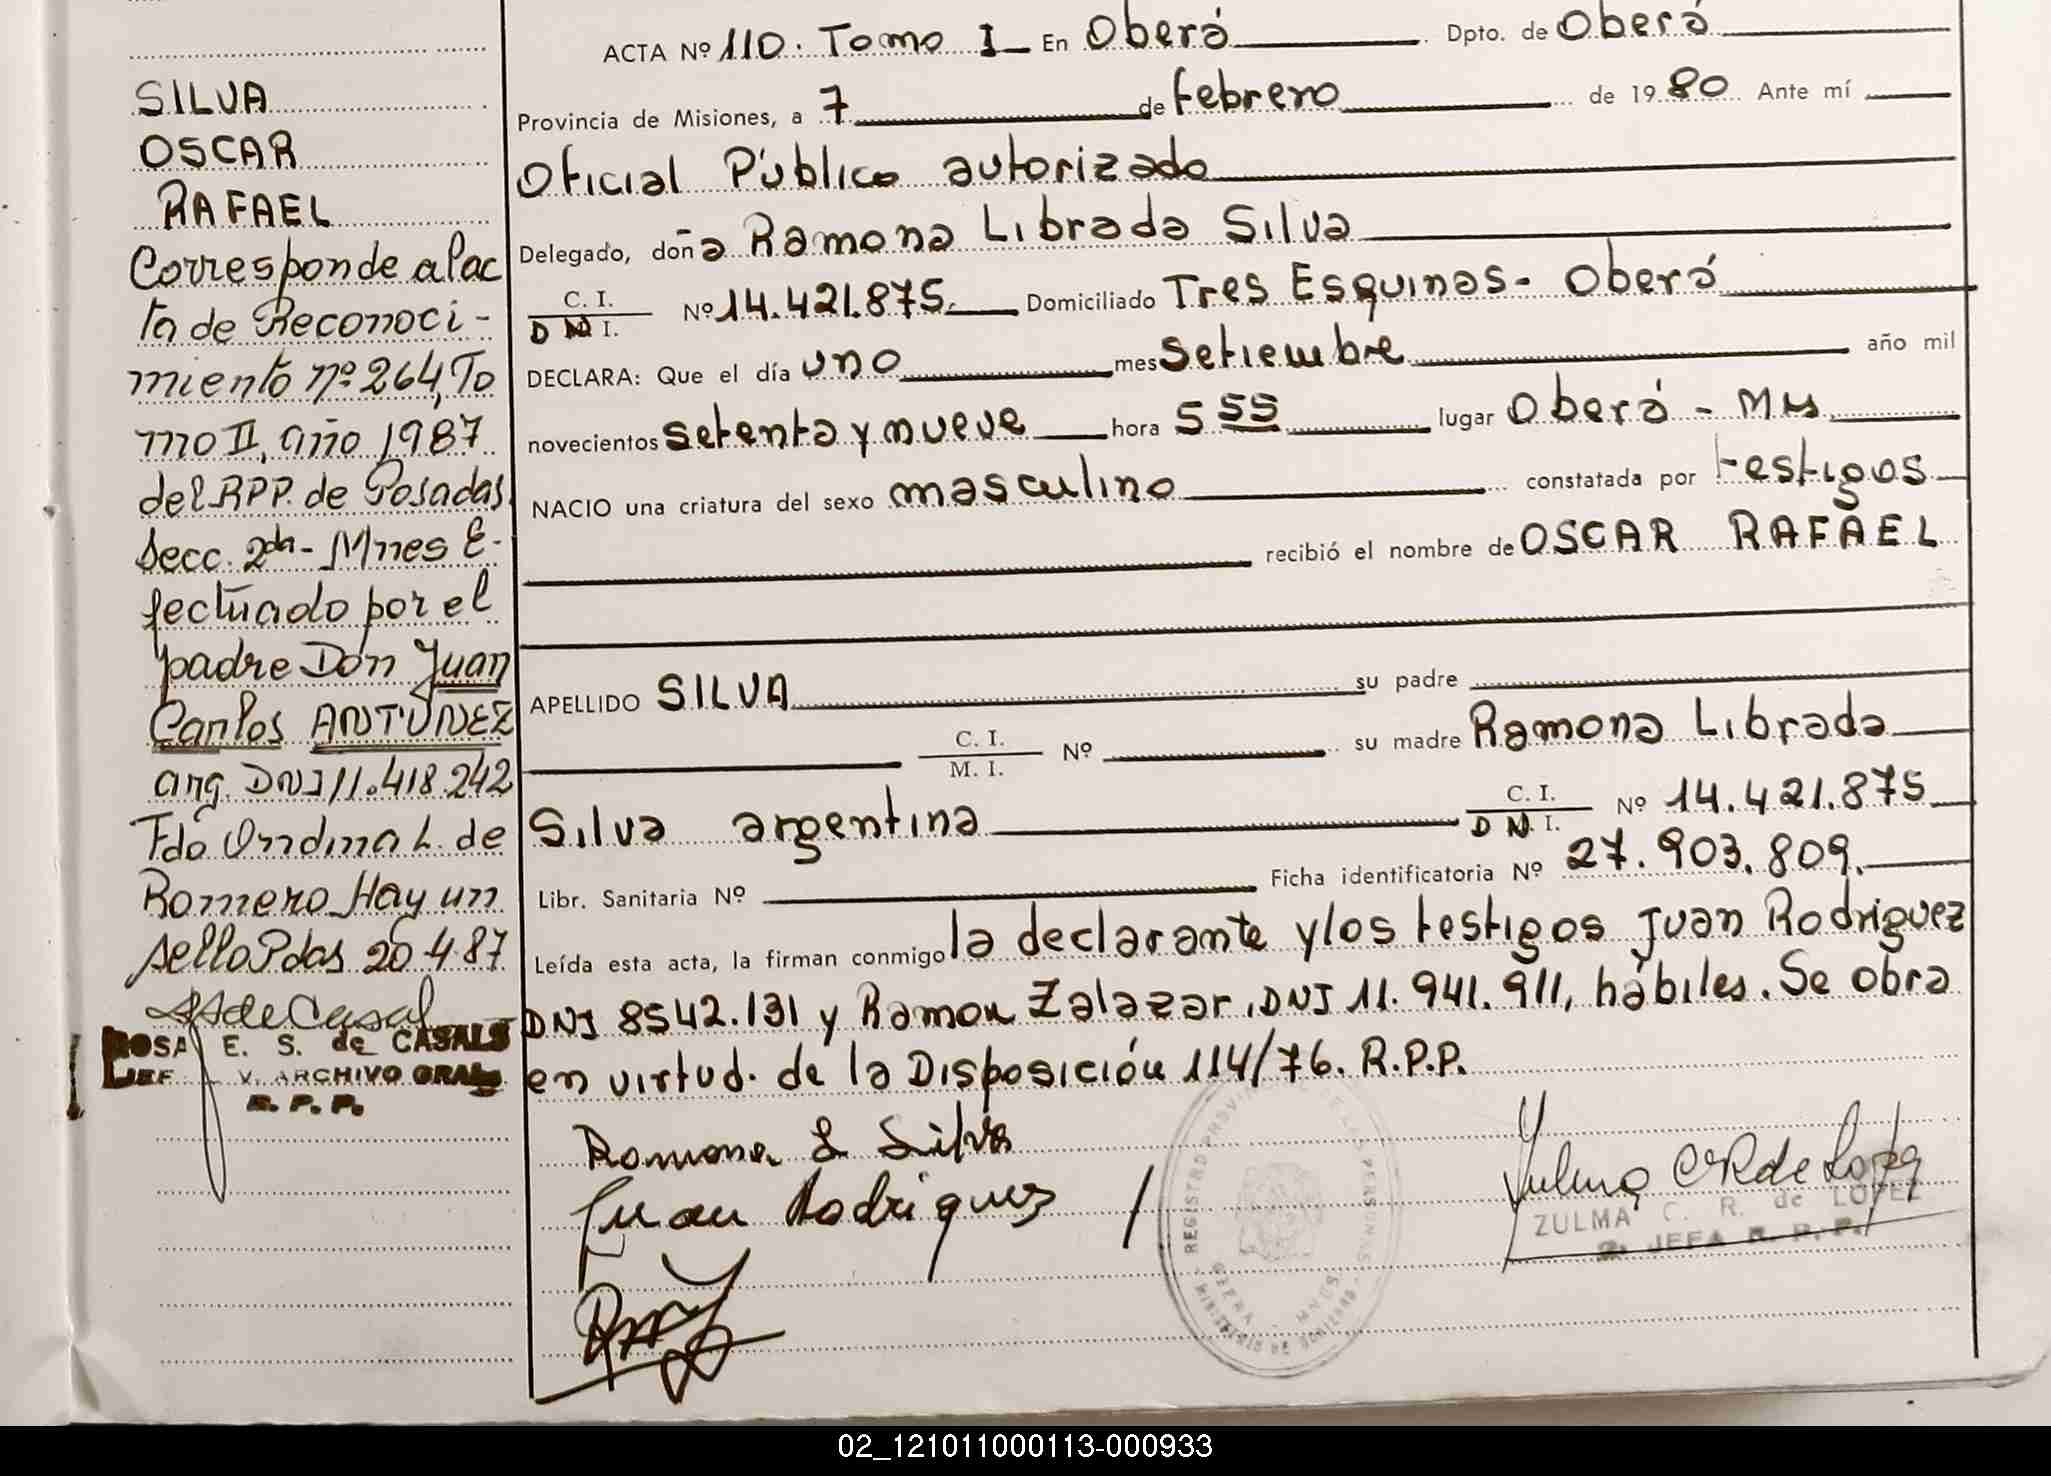 SILVA
OSCAR
RAFAEL
Corresponde al ac
ta de Reconoci-
miento nº 264, To
mo II, año 1987
del RPP. de Posadas
Secc. 2da - Mnes E-
fectuado por el
padre Don Juan
Carlos ANTUNEZ
arg. DNI 11.418.242
Fdo Ondina L. de
Romero Hay un
sello Pdas 20 4 87
ROSA E. S. de CASALS
V. ARCHIVO GRAL
R. P. P.
ACTA Nº 110. Tomo I En Oberá Dpto. de Oberá
Provincia de Misiones, a 7 de febrero de 1980 Ante mí
Oficial Público autorizado
Delegado, doña Ramona Librada Silva
C. I.
DNI. Nº 14.421.875. Domiciliado Tres Esquinas - Oberá
DECLARA: Que el día uno mes setiembre año mil
novecientos setenta y nueve hora 5 55 lugar Oberá - Mns
NACIO una criatura del sexo masculino constatada por testigos
recibió el nombre de OSCAR RAFAEL
APELLIDO SILVA su padre
C. I.
M. I. Nº su madre Ramona Librada
Silva argentina C. I. DNI. Nº 14.421.875
Libr. Sanitaria Nº Ficha identificatoria Nº 27.903.809.
Leída esta acta, la firman conmigo la declarante y los testigos Juan Rodriguez
DNI 8542.131 y Ramon Zalazar, DNI 11.941.911, hábiles. Se obra
en virtud. de la Disposición 114/76. R.P.P.
Ramona L Silva
Juan Rodriguez
Zulma C R de Lopez
ZULMA C. R. de LOPEZ
JEFA R. P. P.
02_121011000113-000933